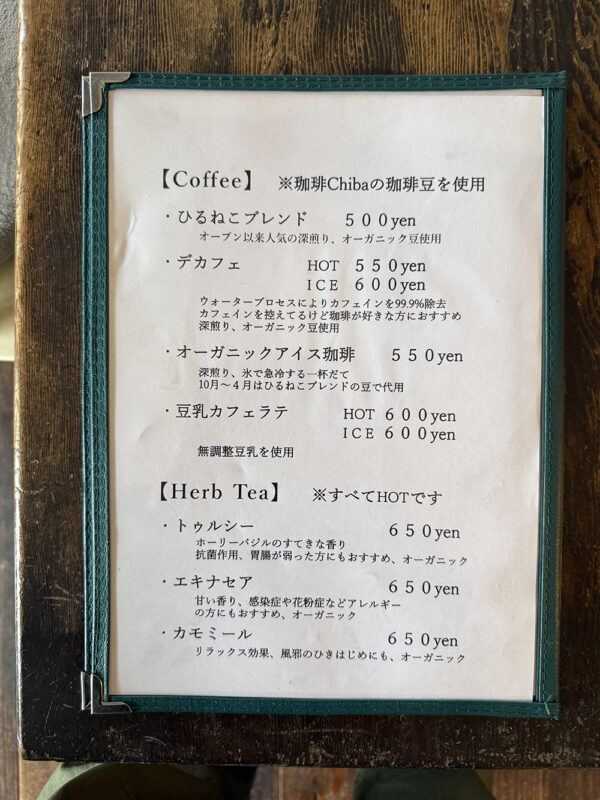 【Coffee】 ※珈琲Chibaの珈琲豆を使用
・ひるねこブレンド ５００yen
オープン以来人気の深煎り、オーガニック豆使用
・デカフェ HOT ５５０yen
ICE ６００yen
ウォータープロセスによりカフェインを99.9%除去
カフェインを控えてるけど珈琲が好きな方におすすめ
深煎り、オーガニック豆使用
・オーガニックアイス珈琲 ５５０yen
深煎り、氷で急冷する一杯だて
10月～４月はひるねこブレンドの豆で代用
・豆乳カフェラテ HOT ６００yen
ICE ６００yen
無調整豆乳を使用
【Herb Tea】 ※すべてHOTです
・トゥルシー ６５０yen
ホーリーバジルのすてきな香り
抗菌作用、胃腸が弱った方にもおすすめ、オーガニック
・エキナセア ６５０yen
甘い香り、感染症や花粉症などアレルギー
の方にもおすすめ、オーガニック
・カモミール ６５０yen
リラックス効果、風邪のひきはじめにも、オーガニック